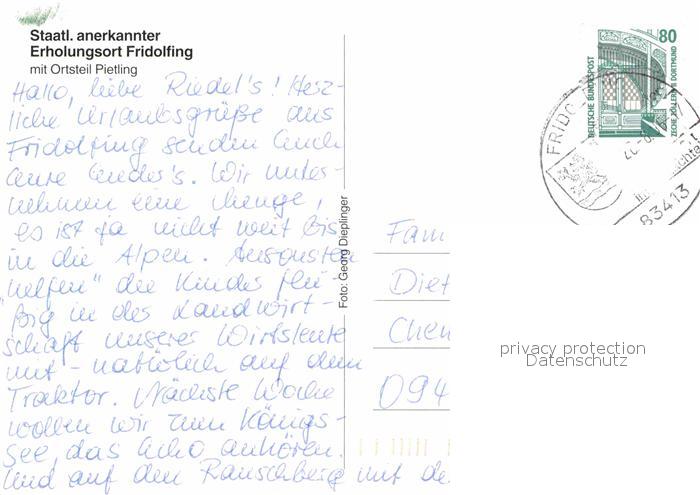 Staatl. anerkannter
Erholungsort Fridolfing
mit Ortsteil Pietling
Hallo, liebe Riedel's! Herz-
liche Urlaubsgrüße aus
Fridolfing senden Euch
Eure Enders. Wir unter-
nehmen eine Menge,
es ist ja nicht weit bis
in die Alpen. Ansonsten
"helfen" die Kinder flei-
ßig in der Landwirt-
schaft unserer Wirtsleute
mit - natürlich auf dem
Traktor. Nächste Woche
wollen wir zum Königs-
see, das Echo anhören.
Und auf den Rauschberg mit de
Foto: Georg Dieplinger
80
DEUTSCHE BUNDESPOST
ZECHE ZOLLERN II DORTMUND
FRIDO
83413
Fam
Diet
Chem
094
privacy protection
Datenschutz